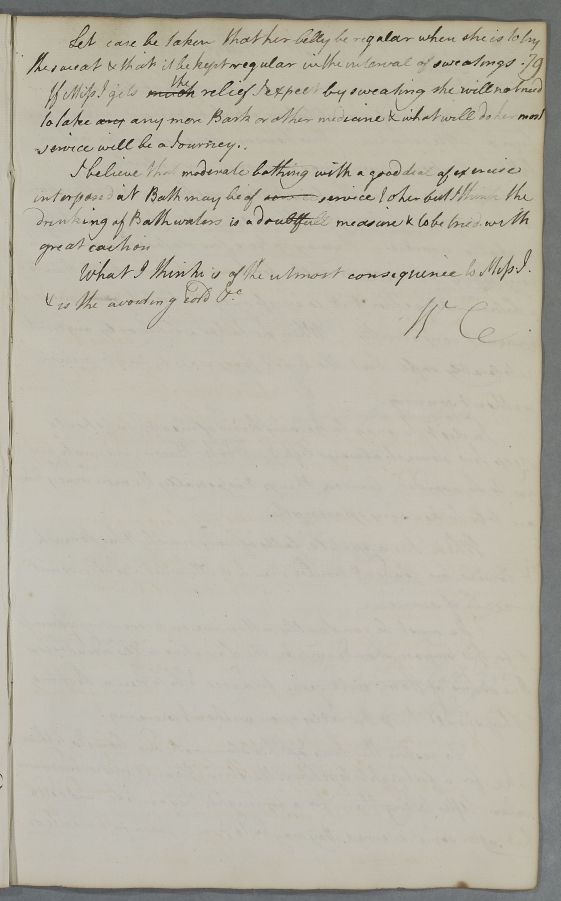 Let care be taken that her belly be regular when she is to try
the sweat & that it be kept regular in the interval of sweatings. 79
If Miss J. gets much the relief I expect by sweating she will not need
to take any any more Bark or other medicine & what will do her most
service will be a Journey.
I believe that moderate bathing with a good deal of exercise
interposed at Bath may be of some service to her but I think the
drinking of Bath waters is a doubtfull measure & to be tried with
great caution
What I think is of the utmost consequence to Miss J.
& is the avoiding cold &c
W C